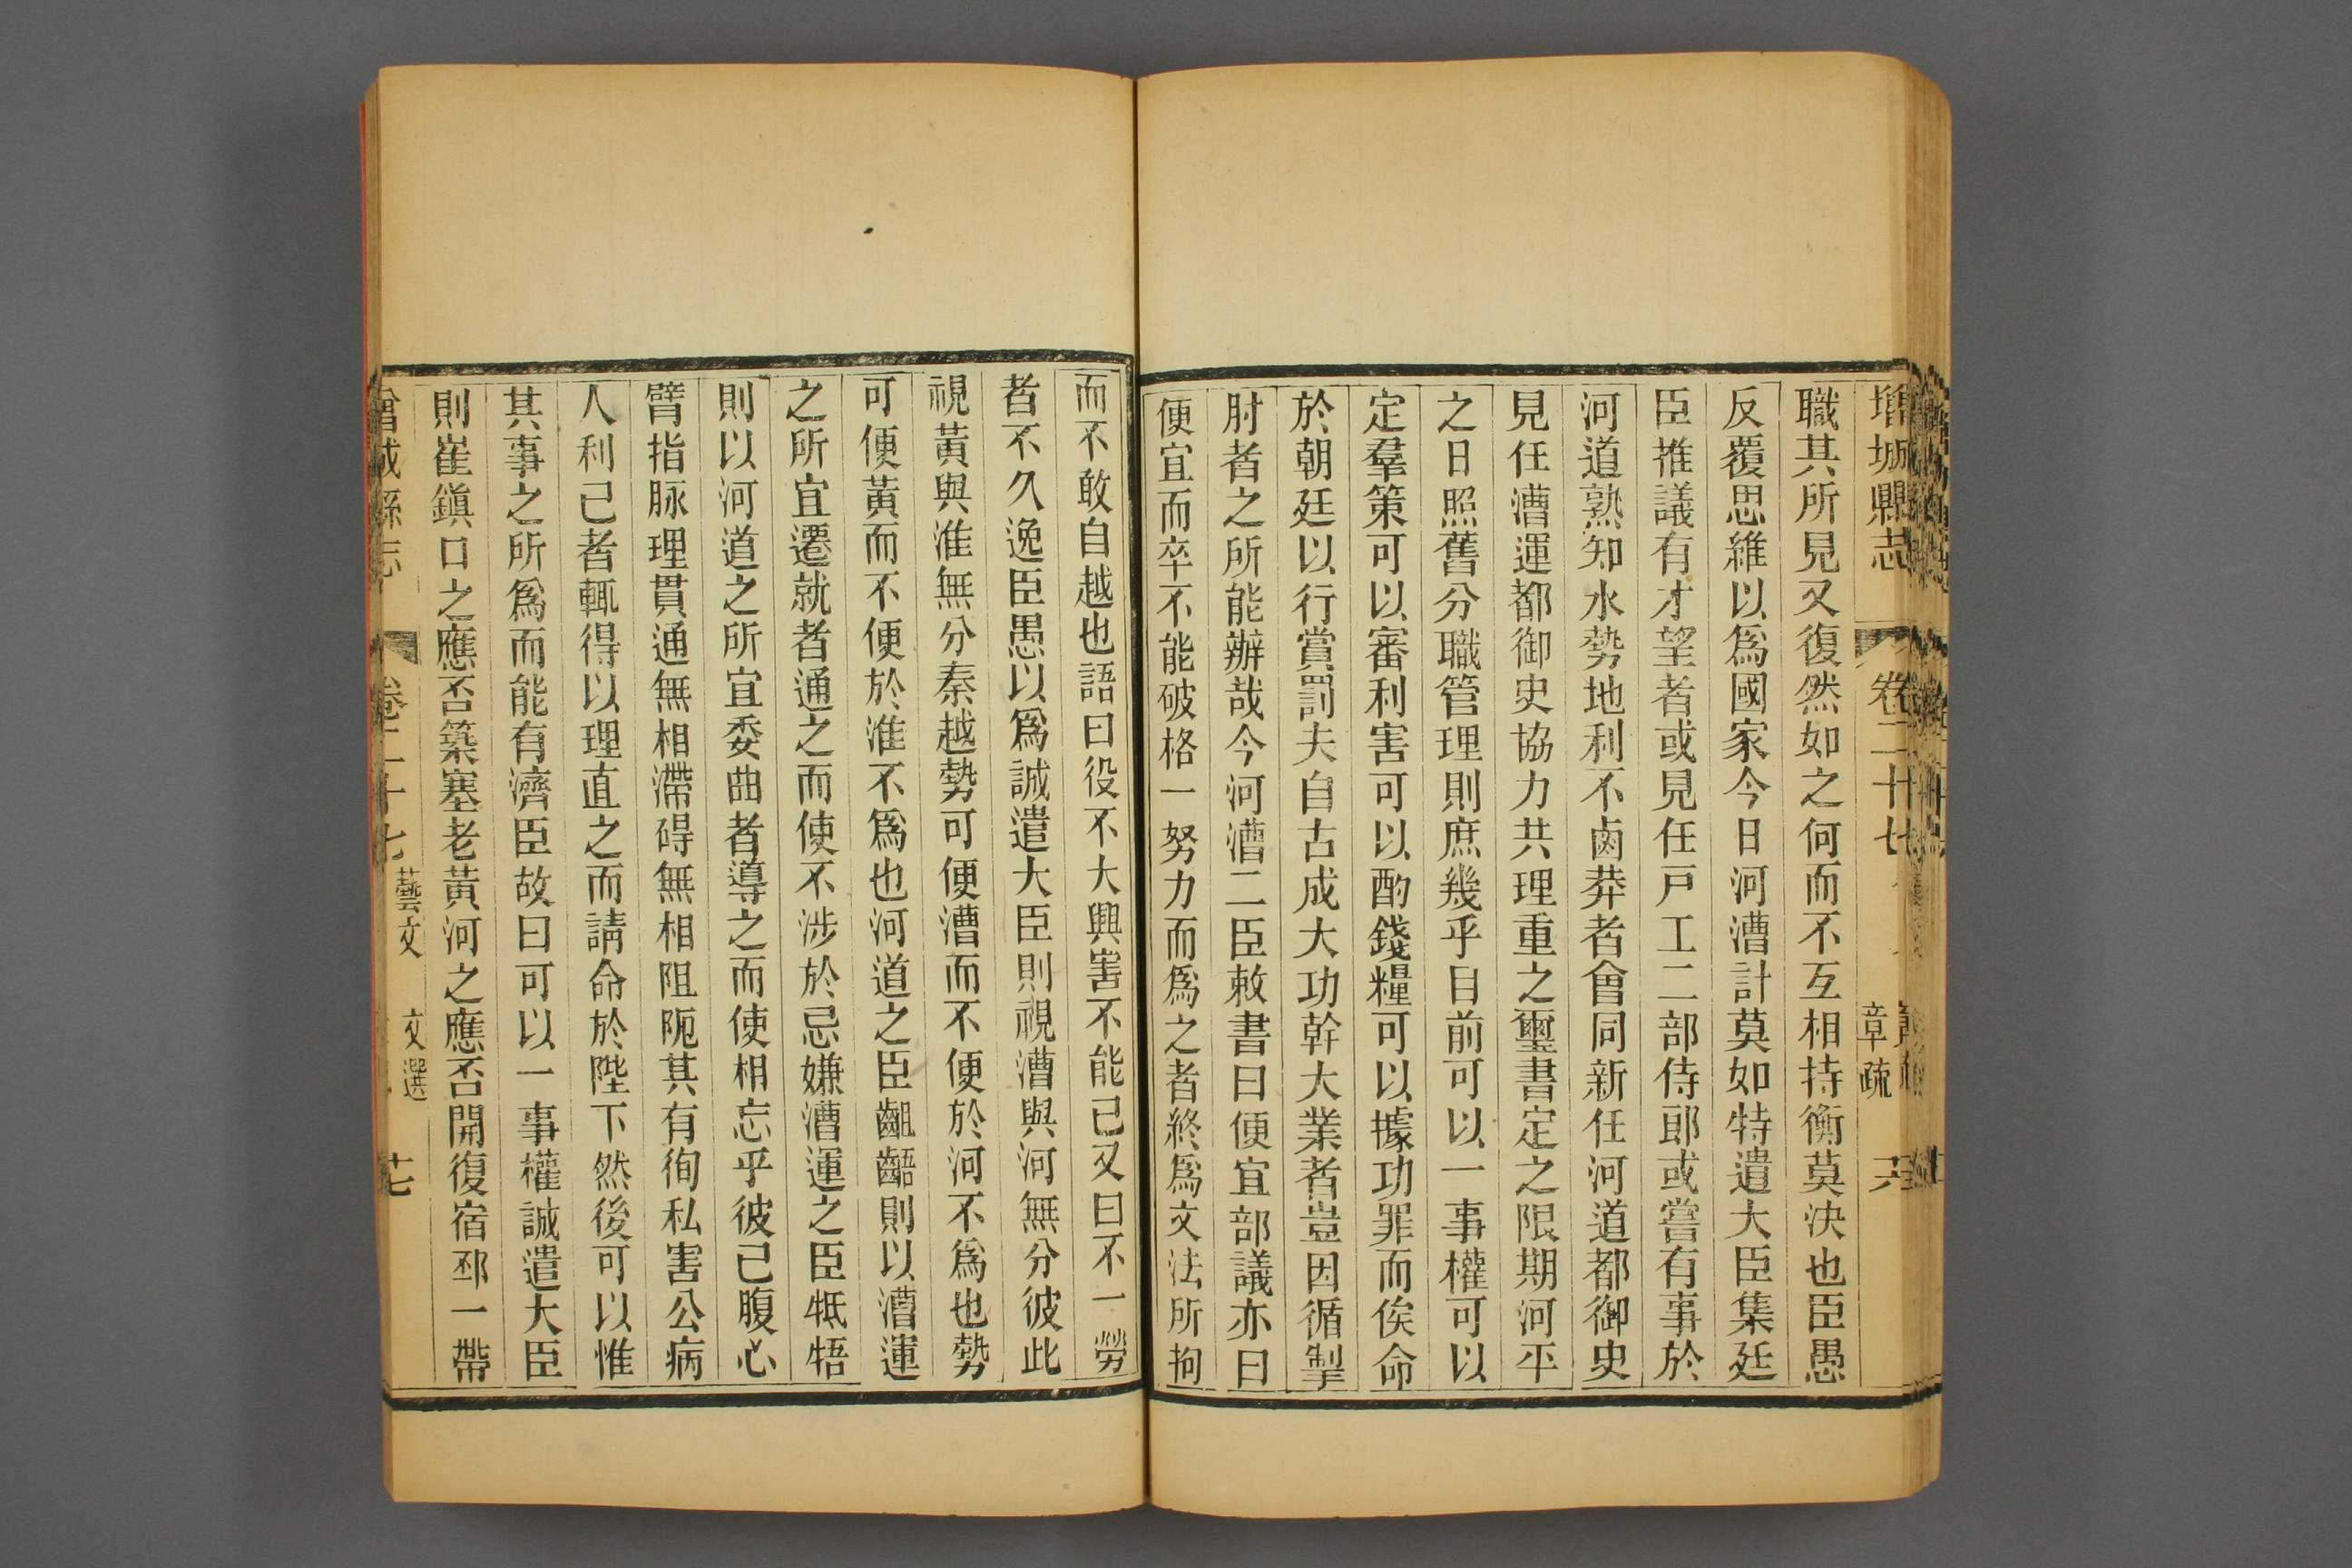 增城縣志
卷二十七
章疏
職其所見又復然如之何而不互相持衡莫決也臣愚
反覆思維以爲國家今日河漕計莫如特遣大臣集廷
臣推議有才望者或見任戸工二部侍郎或嘗有事於
河道熟知水勢地利不鹵莽者會同新任河道都御史
見任漕運都御史協力共理重之璽書定之限期河平
之日照舊分職管理則庶幾乎目前可以一事權可以
定羣策可以審利害可以酌錢糧可以據功罪而俟命
於朝廷以行賞罰夫自古成大功幹大業者豈因循掣
肘者之所能辦哉今河漕二臣敕書曰便宜部議亦曰
便宜而卒不能破格一努力而爲之者終爲文法所拘
而不敢自越也語曰役不大興害不能已又曰不一勞
者不久逸臣愚以爲誠遣大臣則視漕與河無分彼此
視黃與淮無分秦越勢可便漕而不便於河不爲也勢
可便黃而不便於淮不爲也河道之臣齟齬則以漕運
之所宜遷就者通之而使不涉於忌嫌漕運之臣牴牾
則以河道之所宜委曲者導之而使相忘乎彼己腹心
臂指脉理貫通無相滯碍無相阻阨其有徇私害公病
人利己者輒得以理直之而請命於陛下然後可以惟
其事之所爲而能有濟臣故曰可以一事權誠遣大臣
則崔鎭口之應否築塞老黃河之應否開復宿邳一帶
增城縣志
卷二十七
藝文
文選
十七